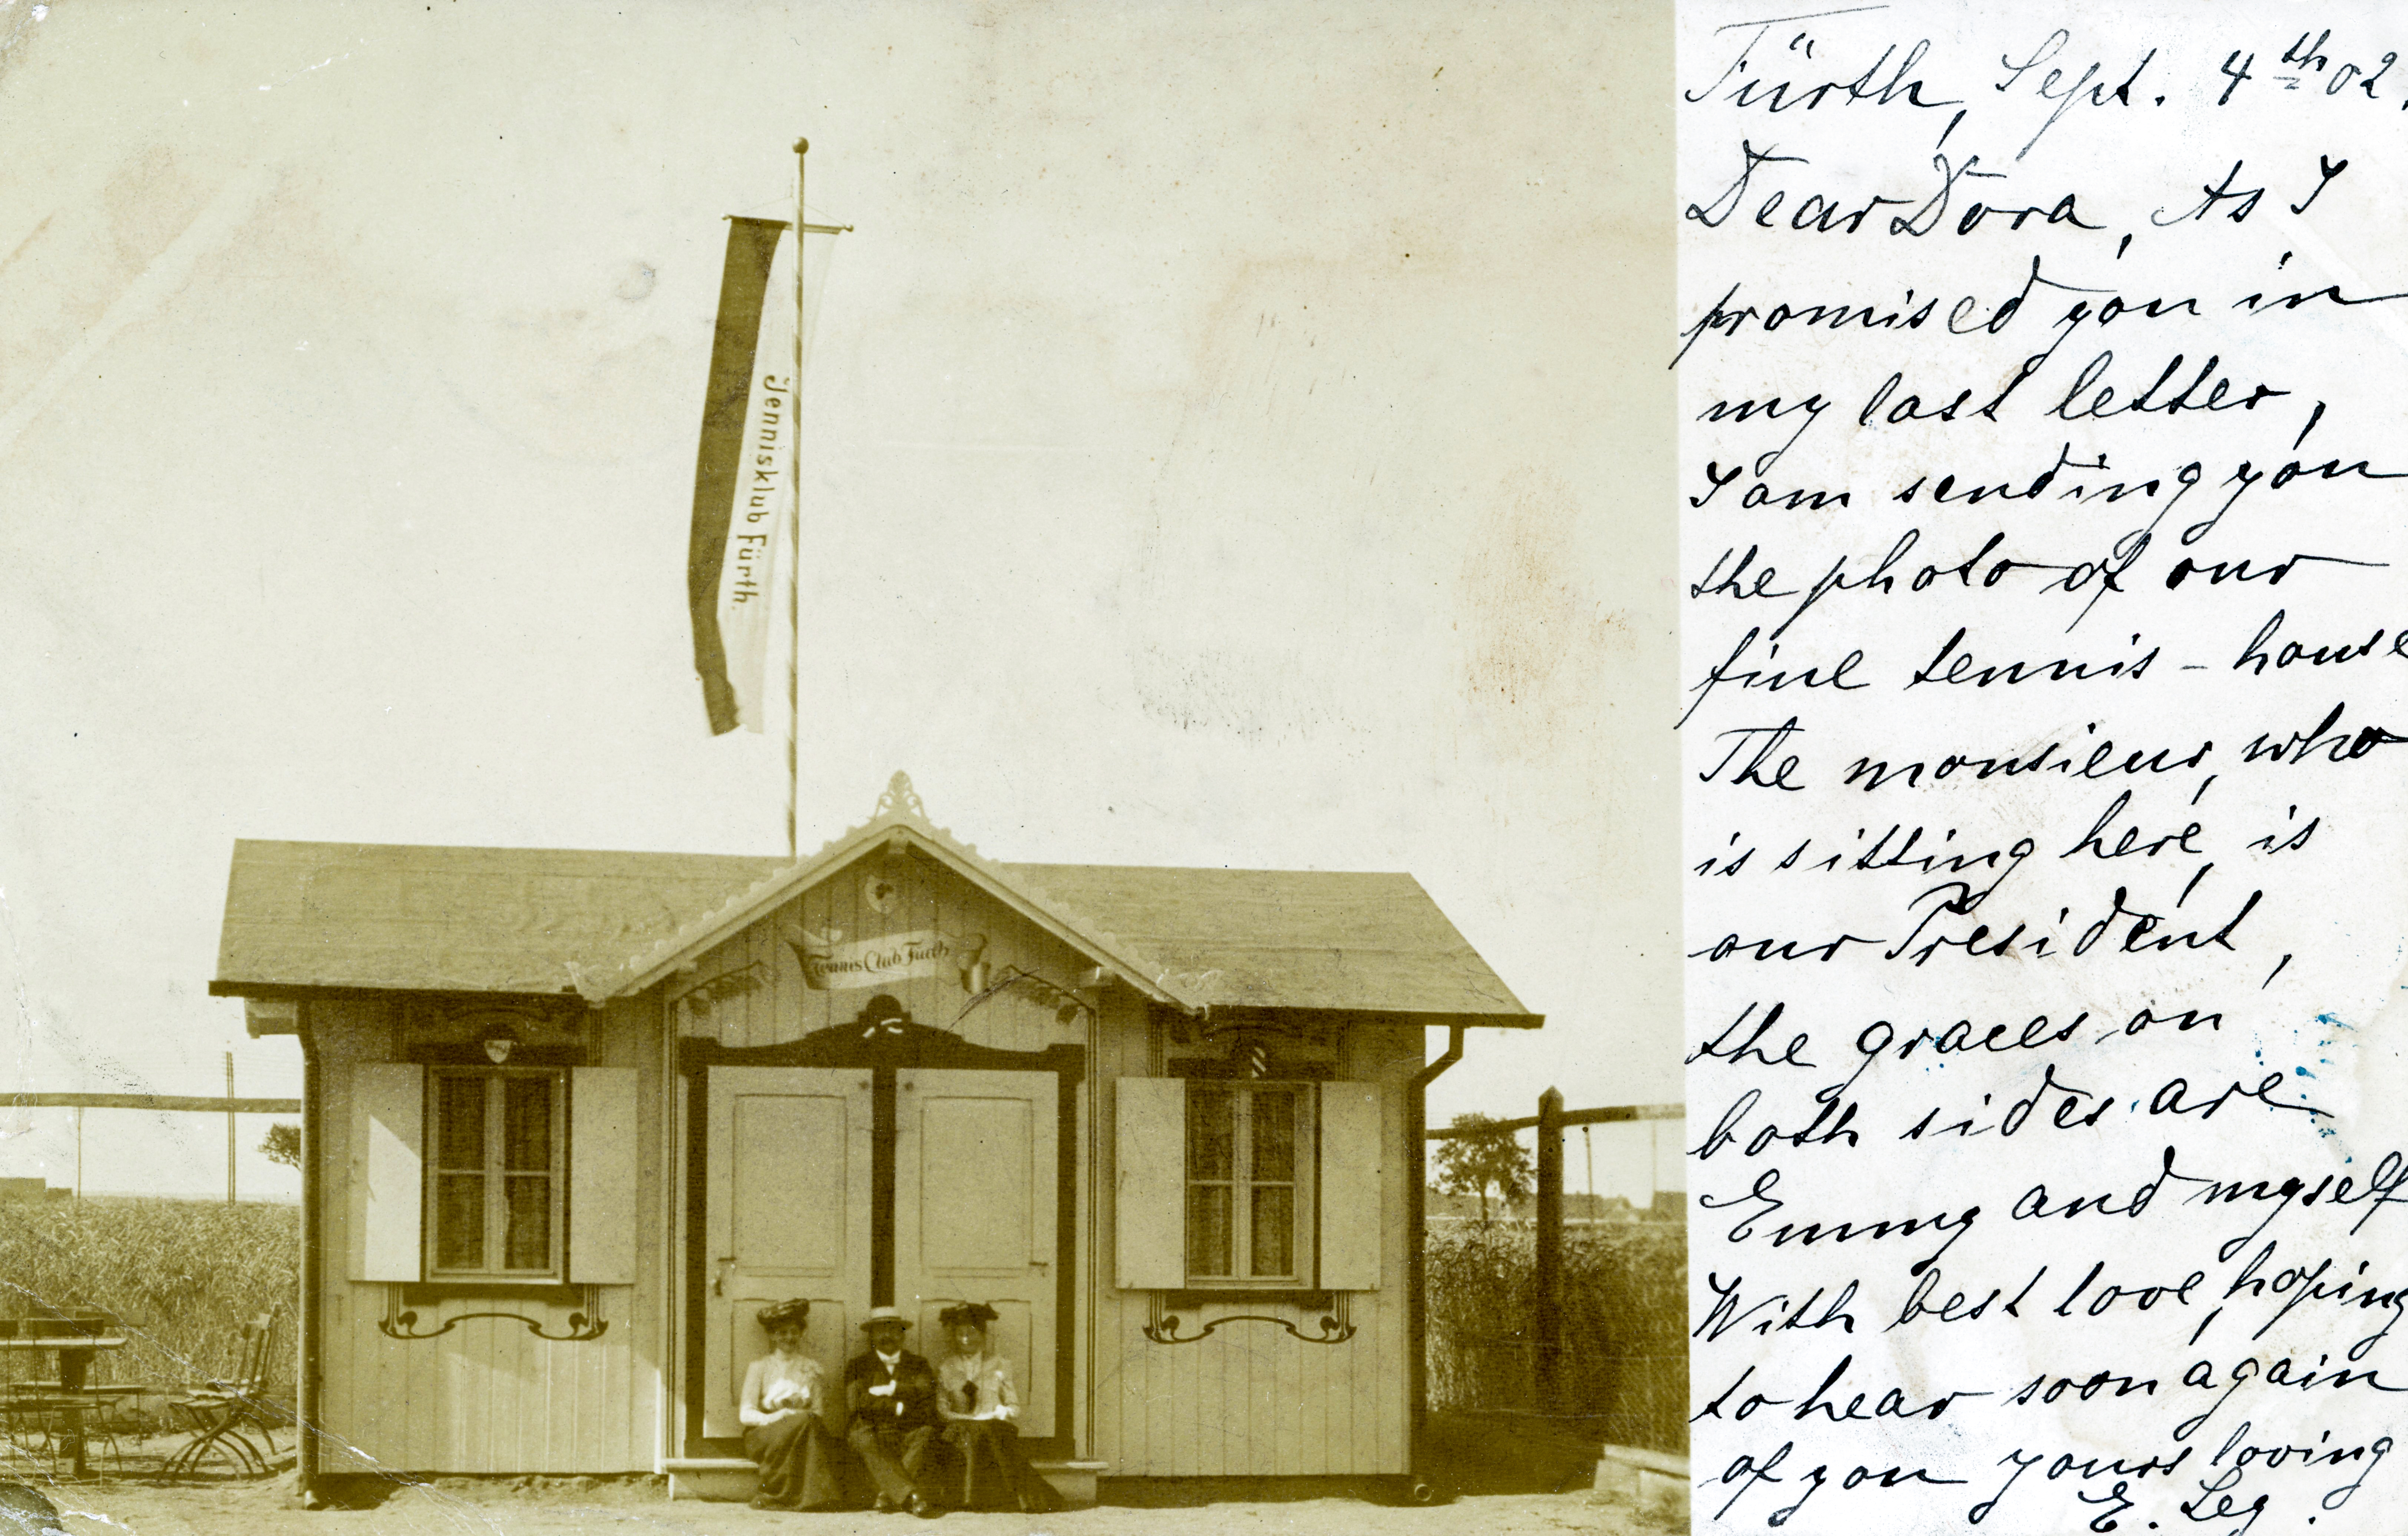 Tennisklub Fürth.
Tennis Club Fürth
Fürth, Sept. 4th 02.
Dear Dora, As I
promised you in
my last letter,
I am sending you
the photo of our
fine tennis - house
The monsieur, who
is sitting here, is
our President,
the graces on
both sides are
Emmy and myself
With best love, hoping
to hear soon again
of you yours loving
E. Ley.